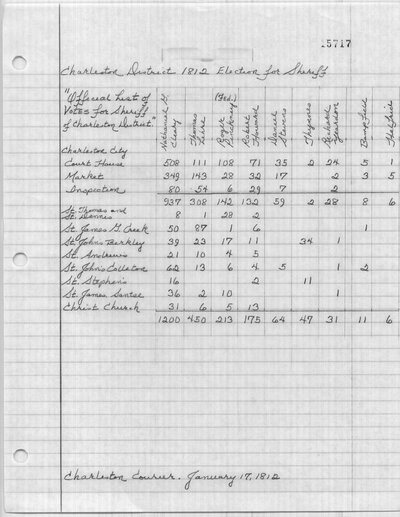 15717
Charleston District 1812 Election for Sheriff
"Official List of Votes for Sheriff of Charleston District."
Nathaniel G. Cleary
Thomas
(Fed.) Roger Pinckney
Robert Howard
Daniel Stevens
Richard
Charleston City
Court House 508 111 108 71 35 2 24 5 1
Market 349 143 28 32 17 2 3 5
Inspection 80 54 6 29 7 2
937 308 142 132 59 2 28 8 6
St. Thomas and St. Dennis 8 1 28 2
St James G. Creek 50 87 1 6 1
St. John's Berkley 39 23 17 11 34 1
St. Andrews 21 10 4 5
St. John's Colleton 62 13 6 4 5 1 2
St. Stephen's 16 2 11
St. James Santee 36 2 10 1
Christ Church 31 6 5 13
1200 450 213 175 64 47 31 11 6
Charleston Courier. January 17, 1812